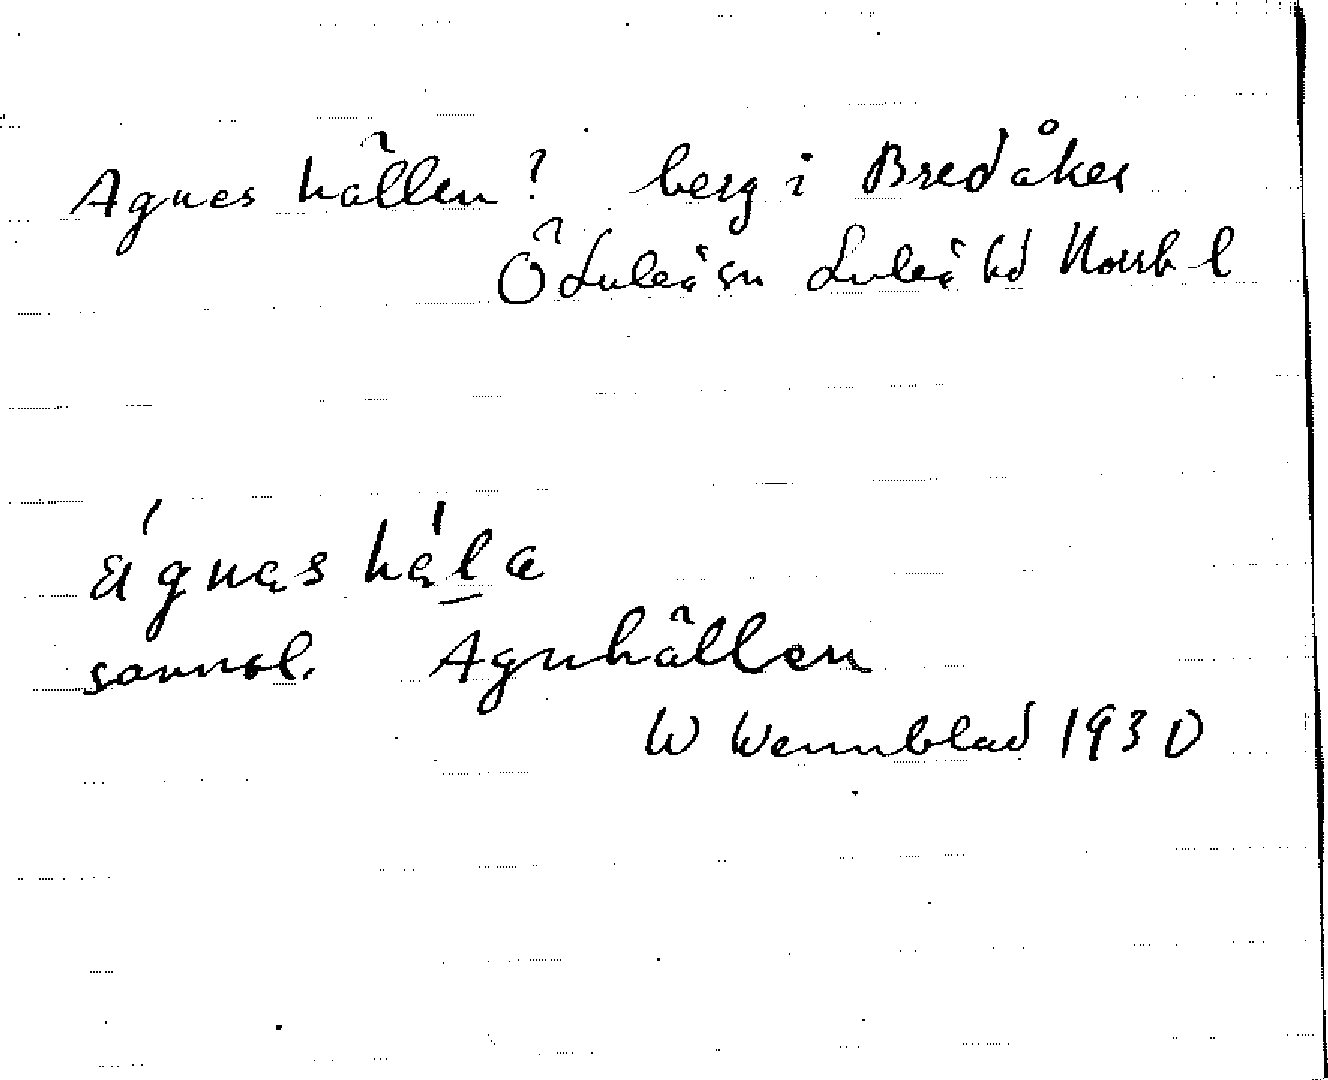 Agneshällen? berg i Bredåker
Ö Luleå sn Luleå hd Norrb l
sannol. Agnhällen
W Wennblad 1930